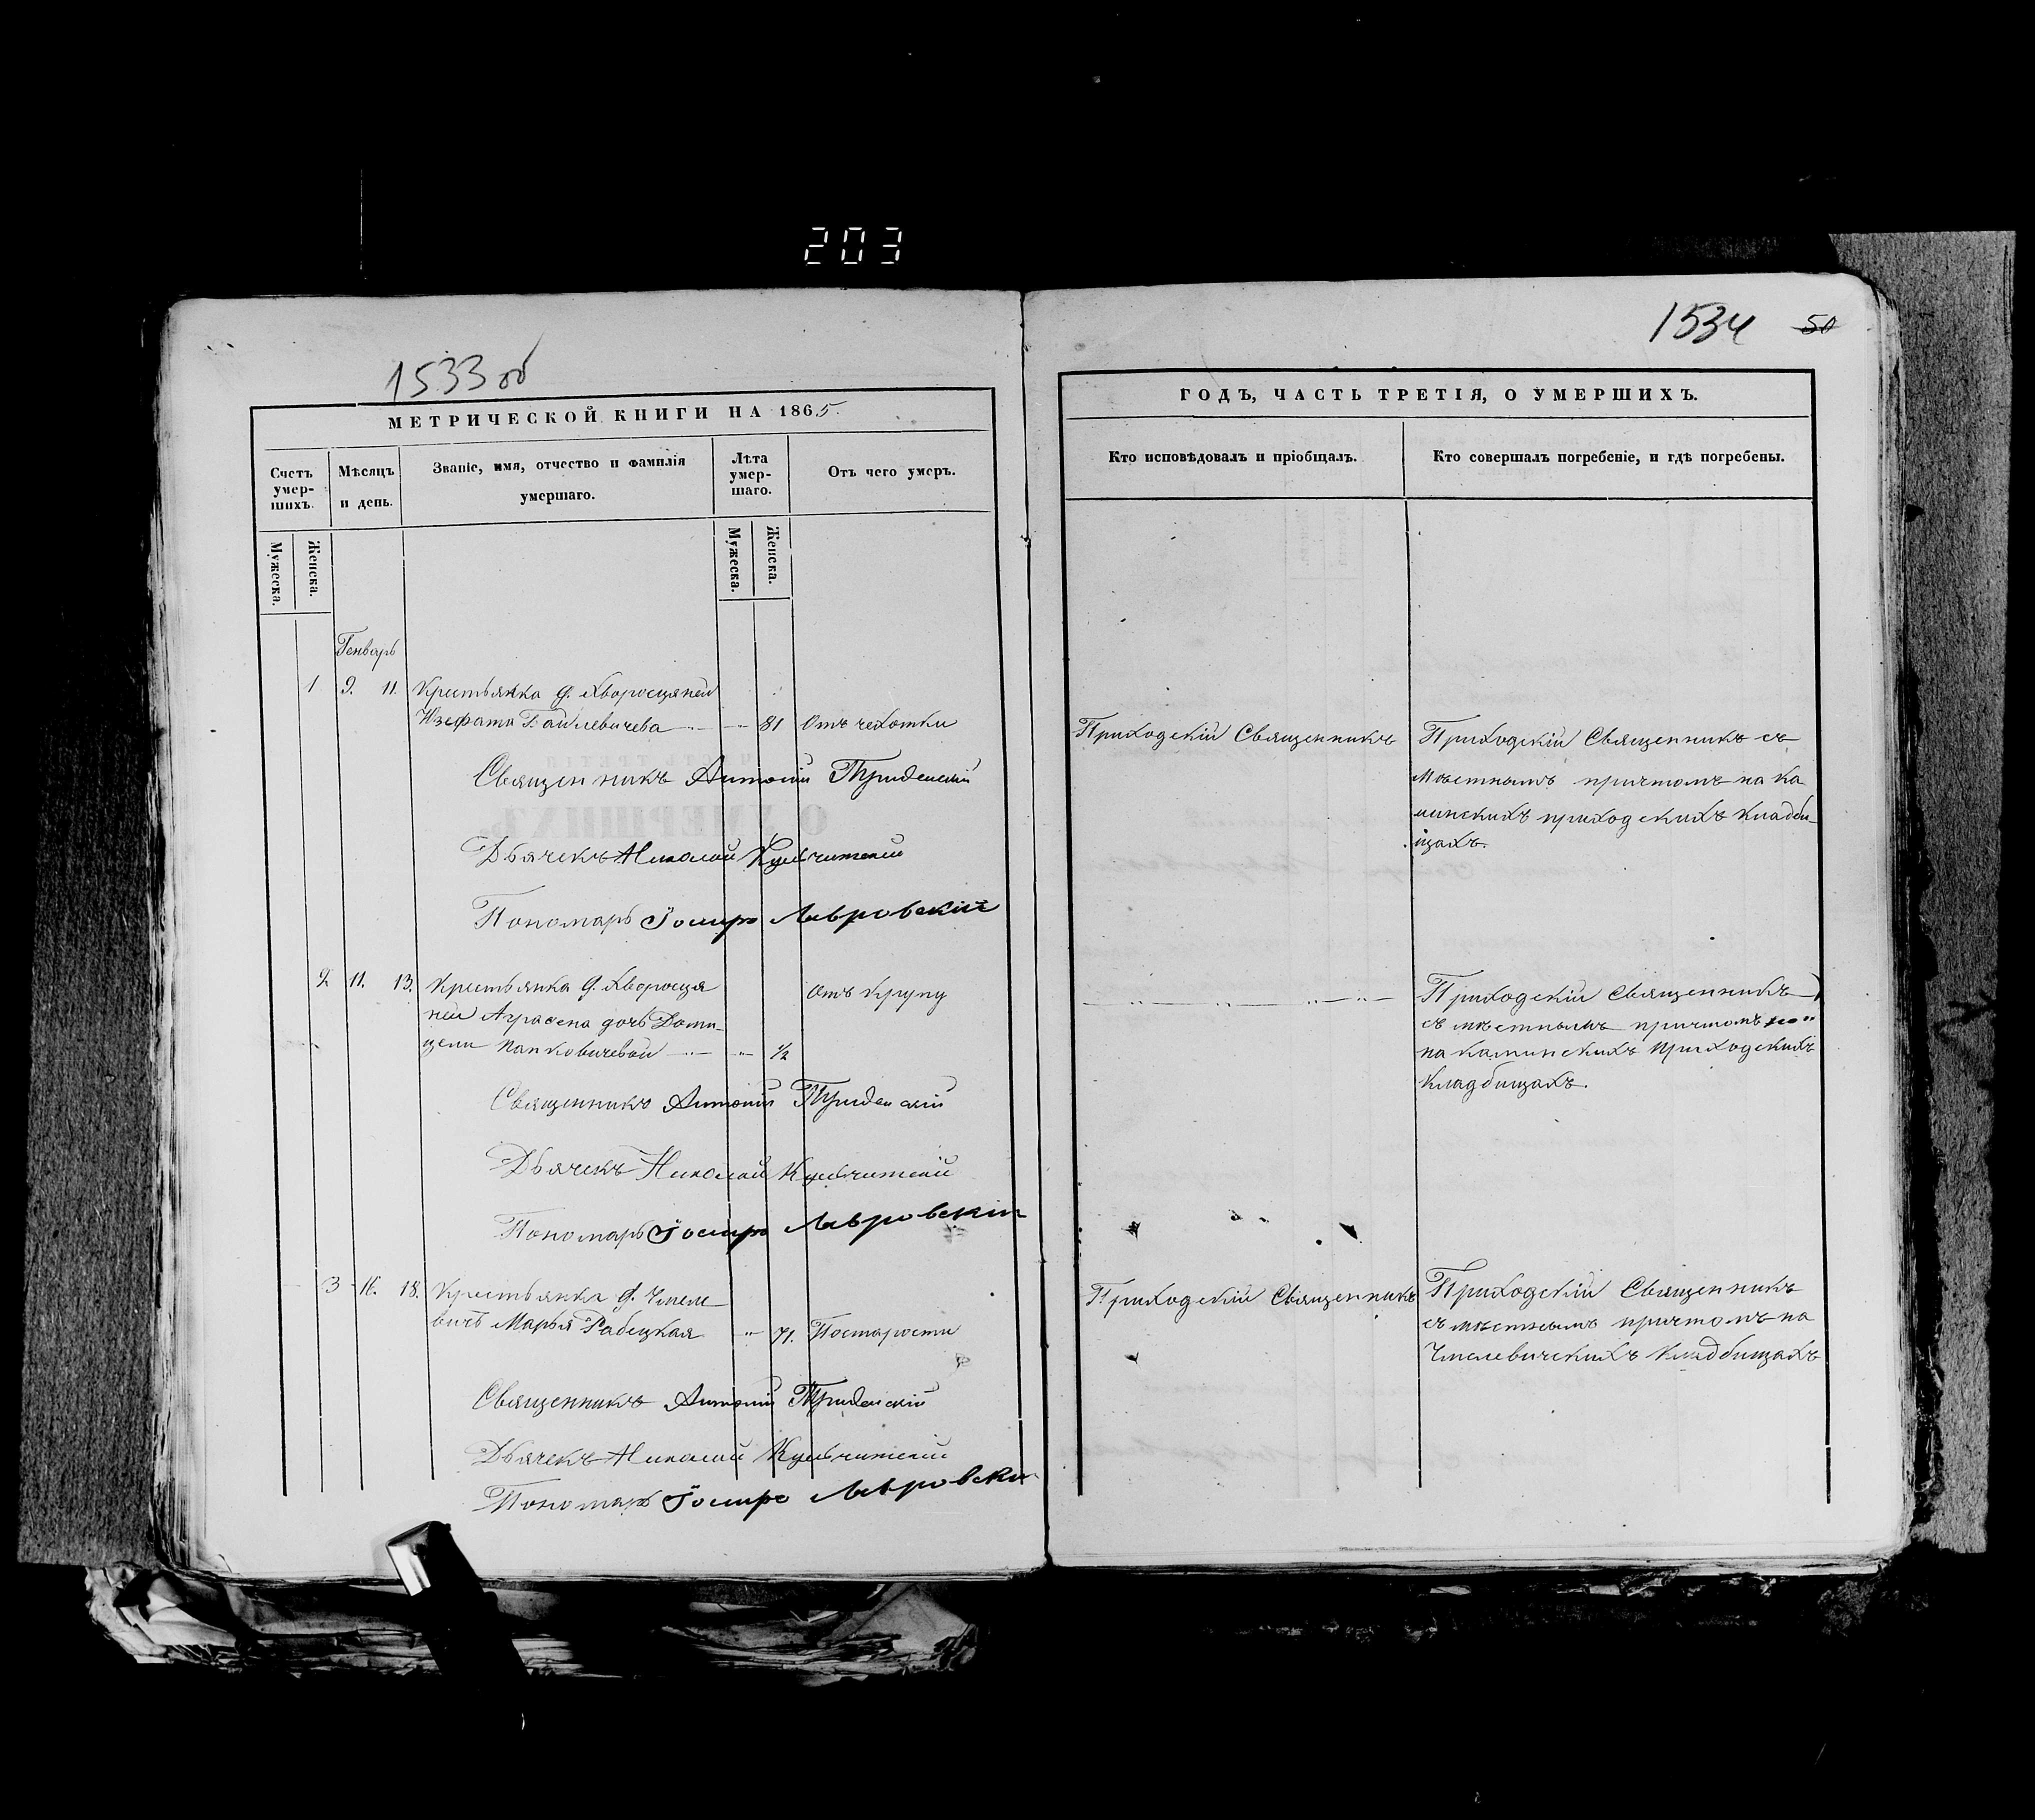 203
1533 об
1534 50
МЕТРИЧЕСКОЙ КНИГИ НА 1865.
Счетъ умер-шихъ.
Мѣсяцъ и день.
Званіе, имя, отчество и фамилія
умершаго.
Лѣта умер-шаго.
Отъ чего умеръ.
Мужеска.
Женска.
Мужеска.
Женска.
Генварь
1 9. 11. Крестьянка д. Хворосцяней
Юзефата Гайлевичева 81 Отъ чехотки
Священникъ Антоній
Дьячекъ Николай
Пономарь Іосифъ Лавровскій
2 11. 13. Крестьянка д. Хворосця
ней Аграфена дочь Доми-
цели Панковичевой 1/2
Отъ крупу
Священникъ Антоній
Дьячекъ Николай
Пономарь Іосифъ Лавровскій
3 16. 18. Крестьянка д. Чмеле
вичъ Марья Рабецкая 71. По старости
Священникъ Антоній
Дьячекъ Николай
Пономарь Іосифъ Лавровскі
ГОДЪ, ЧАСТЬ ТРЕТІЯ, О УМЕРШИХЪ.
Кто исповѣдовалъ и пріобщалъ.
Кто совершалъ погребеніе, и гдѣ погребены.
Приходскій Священникъ
Приходскій Священникъ съ
мѣстнымъ причтомъ на Ка
минскихъ приходскихъ кладби-
щахъ.
Приходскій Священникъ
съ мѣстнымъ причтомъ
на Каминскихъ приходскихъ
кладбищахъ.
Приходскій Священникъ
Приходскій Священникъ
съ мѣстнымъ причтомъ на
Чмелевичскихъ кладбищахъ